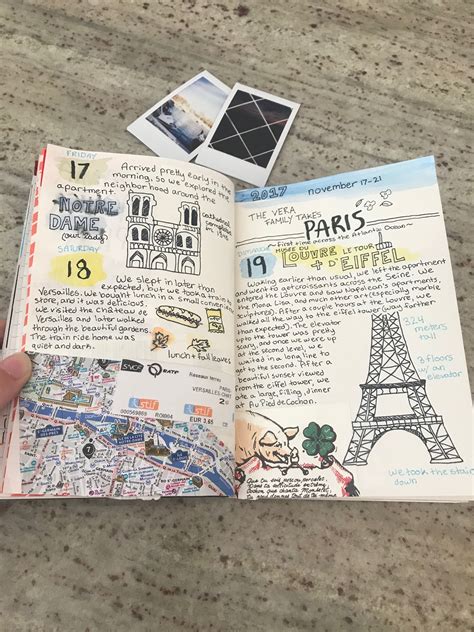 FRIDAY
17
Arrived pretty early in the
morning, so we explored the
apartment neighborhood around the
NOTRE
DAME
(our lady)
cathedral
SATURDAY
18
We slept in later than
expected, but we took a train to
Versailles. We bought lunch in a small convenience
store, and it was delicious.
We visited the Château de
Versailles and later walked
through the beautiful gardens.
The train ride home was
quiet and dark.
lunch + fall leaves
SNCF
RATP
stif
PARIS
VERSAILLES-CHAT
stif
EUR 3,65
2017 november 17-21
THE VERA
FAMILY TAKES
PARIS
~ First time across the Atlantic Ocean ~
19
MUSÉE DU
LOUVRE
LE TOUR
+ D'EIFFEL
Waking earlier than usual, we left the apartment
and went to get croissants across the Seine. We
entered the Louvre and saw Napoleon's apartments,
the Mona Lisa, and much other art (especially marble
sculptures). After a couple hours at the Louvre, we
walked all the way to the eiffel tower (way further
than expected). The elevator
up the tower was pretty
scary, and once we were up
at the second level, we
waited in a long line to
get to the second. After a
beautiful sunset viewed
from the eiffel tower, we
ate a large, filling, dinner
at Au Pied de Cochon.
324
meters
tall
3 floors
w/ an
elevator
we took the stairs
down